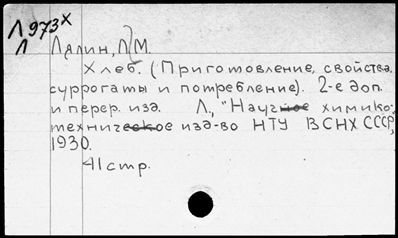 Л 973х
Л
Лялин, Л М.
Хлеб. (Приготовление, свойства,
суррогаты и потребление). 2-е доп.
и перер. изд. Л., "Научное химико-
техническое изд-во НТУ ВСНХ СССР,
1930.
41 стр.